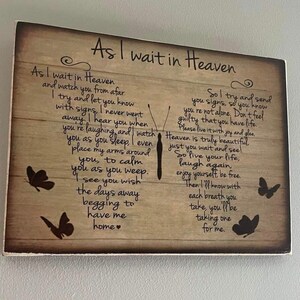 As I wait in Heaven
As I wait in Heaven
and watch you from afar
I try and let you know
with signs, I never went
away. I hear you when
you're laughing, and I watch
you as you sleep. I even
place my arms around
you, to calm
you as you weep.
I see you wish
the days away
begging to
have me
home♥
So I try and send
you signs, so you know
you're not alone. Don't feel
guilty that you have life
Please live it with joy and glee
Heaven is truly beautiful
just you wait and see.
So live your life,
laugh again
enjoy yourself be free.
Then I'll know with
each breath you
take, you'll be
taking one
for me.